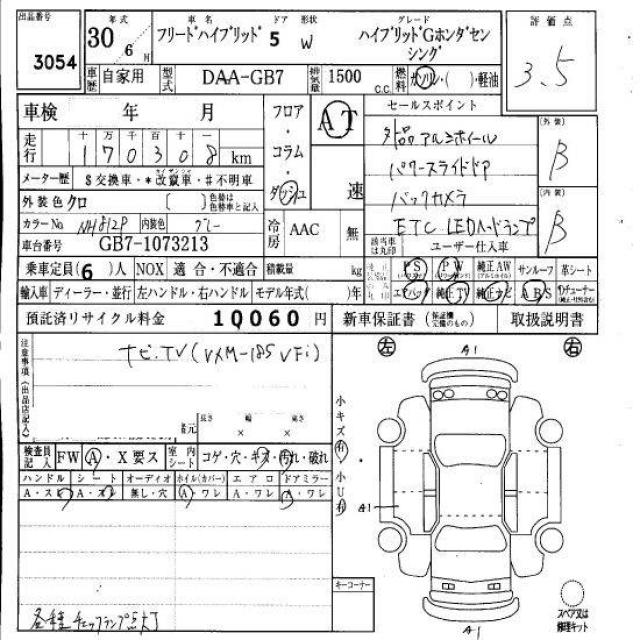 出品番号 3054
年式 30 6 月
車名 フリードハイブリッド
ドア 形状 5 W
グレード ハイブリッドGホンダセンシング
評価点 3.5
車歴 自家用 型式 DAA-GB7 排気量 1500 c.c. 燃料 ガソリン・( )・軽油
車検 年 月
走行 十 万 千 百 十 一
170308 km
フロア・コラム・ダッシュ
AT 速
セールスポイント
外品アルミホイール
パワースライドドア
バックカメラ
ETC LEDヘッドランプ
(外装) B
(内装) B
メーター歴 $交換車・*改竄車・#不明車
外装色 クロ [ ] 色替は色替車と記入
カラーNo. NH812P 内装色 グレー
車台番号 GB7-1073213
冷房 AAC 無
該当車は丸印 ユーザー仕入車
乗車定員(6)人 NOX 適合・不適合 積載量 kg
PS PW 純正AW サンルーフ 革シート
輸入車 ディーラー・並行 左ハンドル・右ハンドル モデル年式( )年
エアバッグ 純正TV 純正ナビ ABS
預託済リサイクル料金 10060 円
新車保証書 (保証欄完備のもの) 取扱説明書
注意事項(出品店記入)
ナビ.TV(VXM-185VFi)
諸元 長さ × 幅 × 高さ
検査員記入 FW A・X要ス 室内シート コゲ・穴・キズ・汚れ・破れ
ハンドル シート オーディオ ホイル(カバー) エアロ ドアミラー
A・スレ A・スレ 無し・穴 A・ワレ A・ワレ A・ワレ
各種チェックランプ点灯
小キズ有・小U有
キーコーナー
左 右
A1
A1
A1
スペア又は修理キット